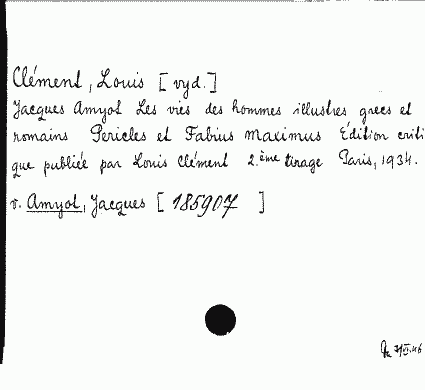 Clément, Louis [vyd.]
Jacques Amyot Les vies des hommes illustres grecs et
romains Pericles et Fabius Maximus Édition criti
que publiée par Louis Clément 2.ème tirage Paris, 1934.
v. Amyot, Jacques [185907]